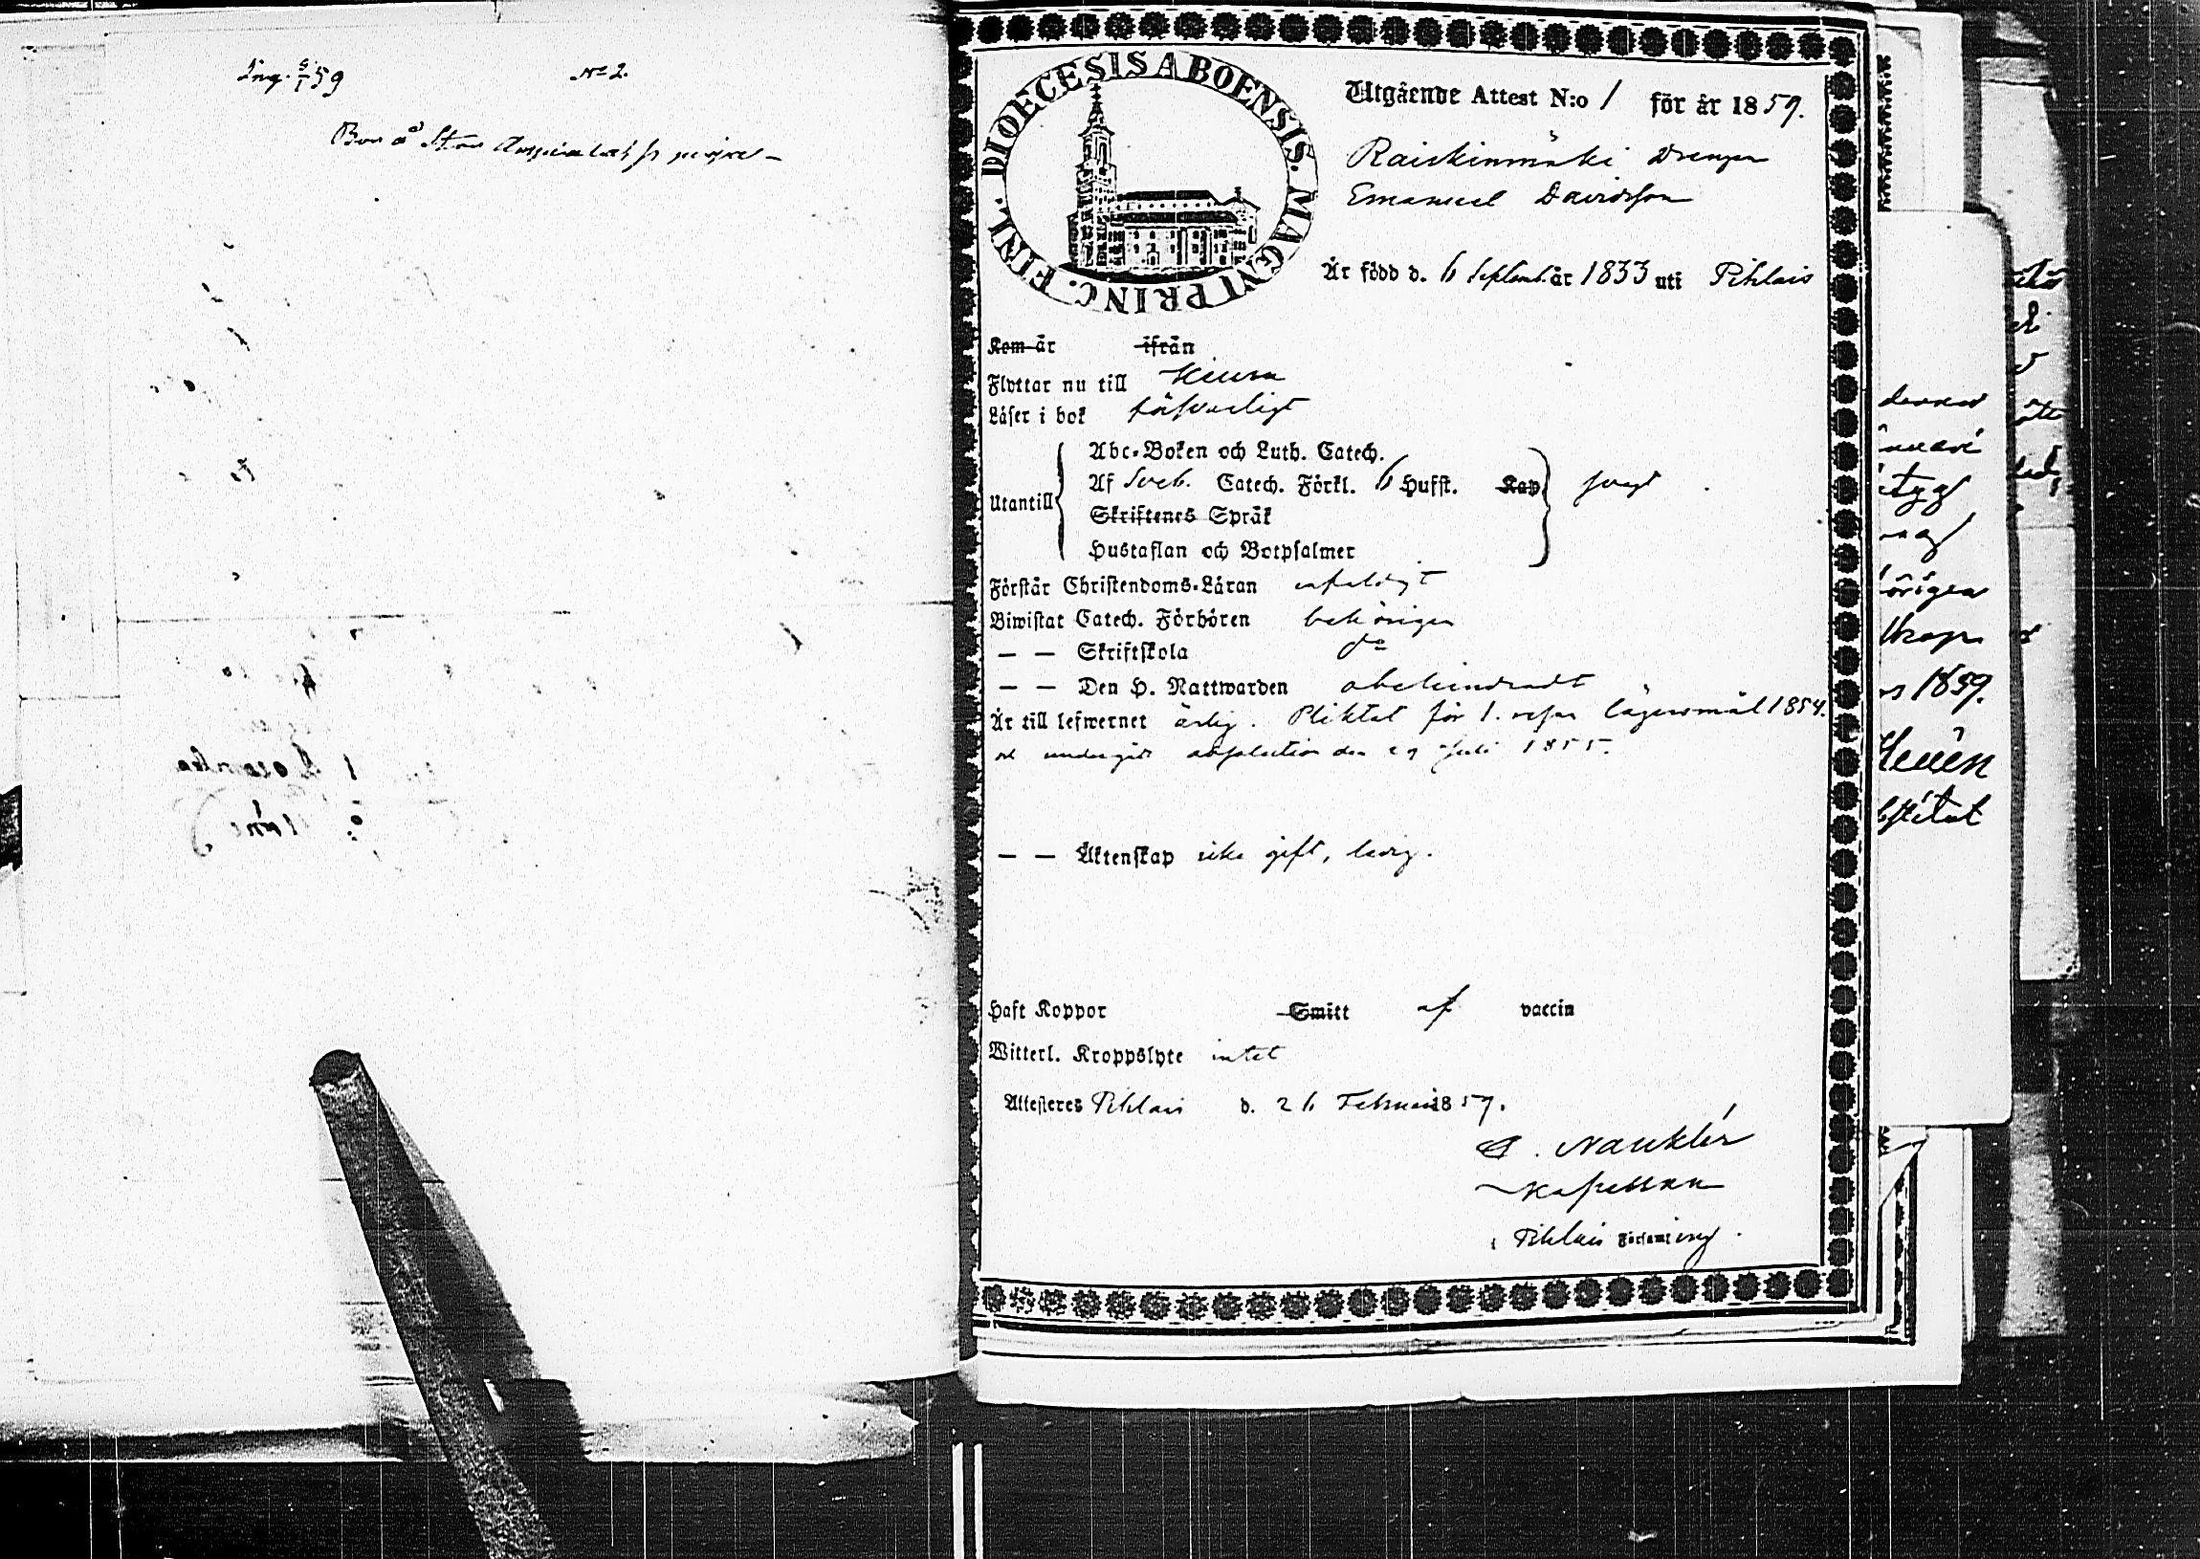 Ing. 5/1 59 No 2.
Bor å Stor
DIOECESIS ABOENSIS. MAGNI PRINC. FINL.
Utgående Attest N:o 1 för år 1859.
Raiskinmäki Drengen
Emanuel Davidsson
Är född d. 6 Septemb. år 1833 uti Pihlais
Kom år ifrån
Flyttar nu till Kiura
Läser i bok försvarligt
Abc-Boken och Luth. Catech.
Utantill Af Sveb. Catech. Förkl. 6 Hufst. Kap svagt
Skriftenes Språk
Hustaflan och Botpsalmer
Förstår Christendoms-Läran enfaldigt
Biwistat Catech. Förhören behörigen
— — Skriftskola do
— — Den H. Nattwarden obehindradt
Är till lefwernet ärlig. Pliktat för 1. resan lägersmål 1854.
och undergått absolution den 29 Juli 1855.
— — Äktenskap icke gift, ledig.
Haft Koppor Smitt af vaccin
Witterl. Kroppslyte intet
Attesteres Pihlais d. 26 Februari 1859.
Nauklér
Kapellan
i Pihlais Församling.
derned
tyg
hörigen
1859.
Heuén